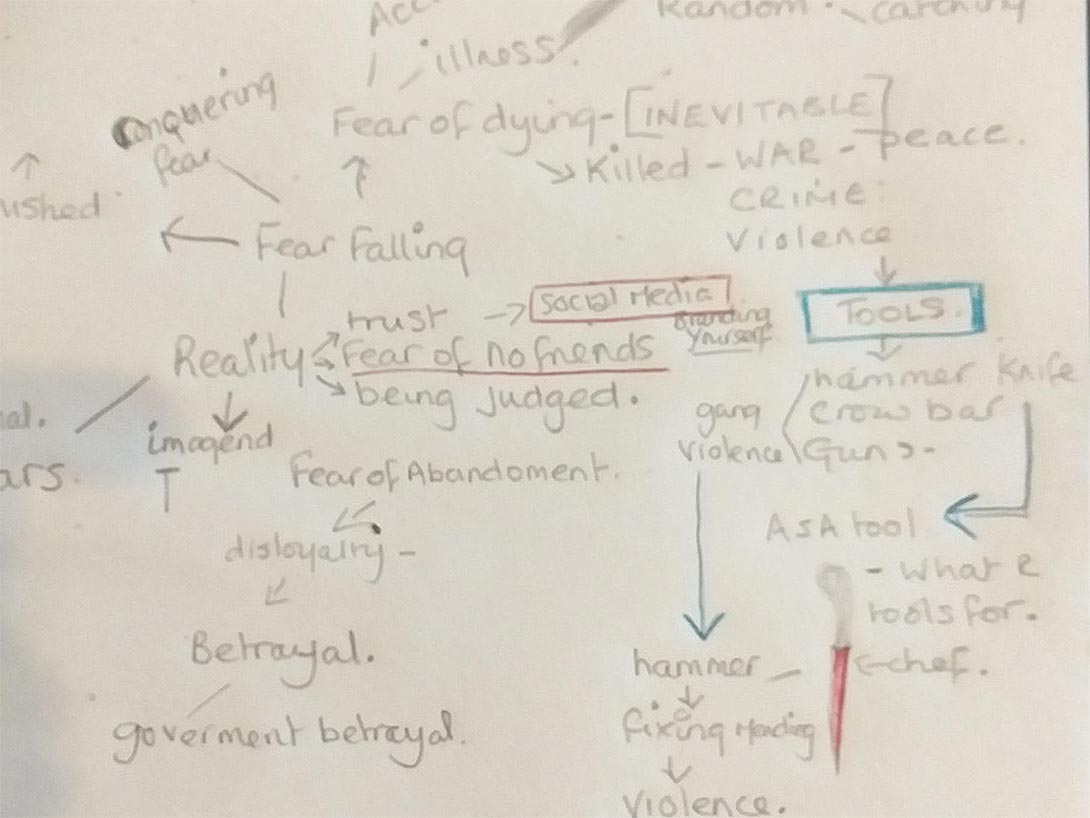 Random
illness.
Conquering
fear
Fear of dying - [INEVITABLE]
Killed - WAR - peace.
CRIME:
Violence
ushed
Fear Falling
TOOLS.
trust → Social Media
Branding
Yourself
Reality
Fear of no friends
being judged.
al.
ars.
imagend
hammer Knife
crow bar
Guns -
gang
violence
Fear of Abandoment.
disloyalty -
AS A tool
- What R
tools for.
Betrayal.
hammer -
chef.
goverment betrayal.
fixing Mending
Violence.